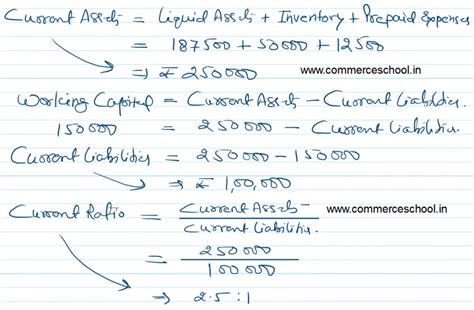 Current Assets = Liquid Assets + Inventory + Prepaid Expenses
= 187500 + 50000 + 12500
⇒ ₹ 250000 www.commerceschool.in
Working Capital = Current Assets - Current Liabilities.
150000 = 250000 - Current Liabilities.
Current Liabilities = 250000 - 150000
⇒ ₹ 1,00,000
Current Ratio = Current Assets www.commerceschool.in
Current Liabilities.
= 250000
100000
⇒ 2.5:1